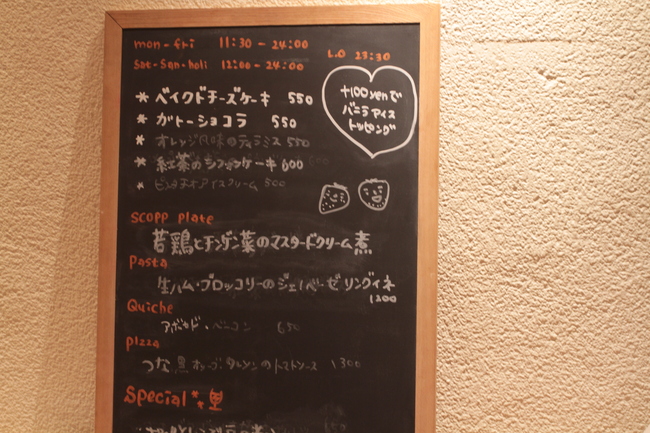 mon-fri 11:30-24:00
L.O 23:30
Sat-Sun-holi 12:00-24:00
+100yenで
バニラアイス
トッピング
* ベイクドチーズケーキ 550
* ガトーショコラ 550
* オレンジ風味のティラミス 550
* 紅茶のシフォンケーキ 600
* アイスクリーム 500
SCOPP plate
若鶏とチンゲン菜のマスタードクリーム煮
Pasta
生ハム・ブロッコリーのジェノベーゼ リングイネ
1200
Quiche
アボカド・ベーコン 650
pizza
つな 黒オリーブ のトマトソース 1300
Special